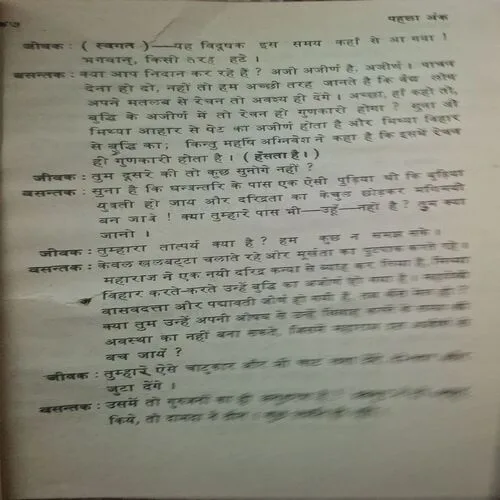 पहला अंक
जीवक : ( स्वगत )—यह विदूषक इस समय कहाँ से आ गया !
भगवान्, किसी तरह हटे ।
बसन्तक : क्या आप निदान कर रहे हैं ? अजी अजीर्ण है, अजीर्ण । पाचक
देना हो दो, नहीं तो हम अच्छी तरह जानते हैं कि वैद्य लोग
अपने मतलब से रेचन तो अवश्य ही देंगे । अच्छा, हाँ कहो तो,
बुद्धि के अजीर्ण में तो रेचन ही गुणकारी होगा ? सुनो जी
मिथ्या आहार से पेट का अजीर्ण होता है और मिथ्या विहार
से बुद्धि का; किन्तु महर्षि अग्निवेश ने कहा है कि इसमें रेचन
ही गुणकारी होता है । ( हँसता है । )
जीवक : तुम दूसरे की तो कुछ सुनोगे नहीं ?
बसन्तक : सुना है कि धन्वन्तरि के पास एक ऐसी पुड़िया थी कि बुढ़िया
युवती हो जाय और दरिद्रता का केंचुल छोड़कर मणिमयी
बन जावे ! क्या तुम्हारे पास भी—उहूँ—नहीं है ? तुम क्या
जानो ।
जीवक : तुम्हारा तात्पर्य क्या है ? हम कुछ न समझ सके ।
बसन्तक : केवल खलबट्टा चलाते रहे और मूर्खता का पुटपाक करते रहे ।
महाराज ने एक नयी दरिद्र कन्या से ब्याह कर लिया है, मिथ्या
विहार करते-करते उन्हें बुद्धि का अजीर्ण हो गया है ।
वासवदत्ता और पद्मावती जीर्ण हो गयी हैं, तब कैसे मेल हो ?
क्या तुम उन्हें अपनी औषध से उन्हें
अवस्था का नहीं बना सकते, जिसमें महाराज इस अजीर्ण से
बच जायँ ?
जीवक : तुम्हारे ऐसे चाटुकार और भी चाट
जुटा देंगे ।
बसन्तक : उसमें तो गुरुजनों का ही
किये, तो दामाद ने